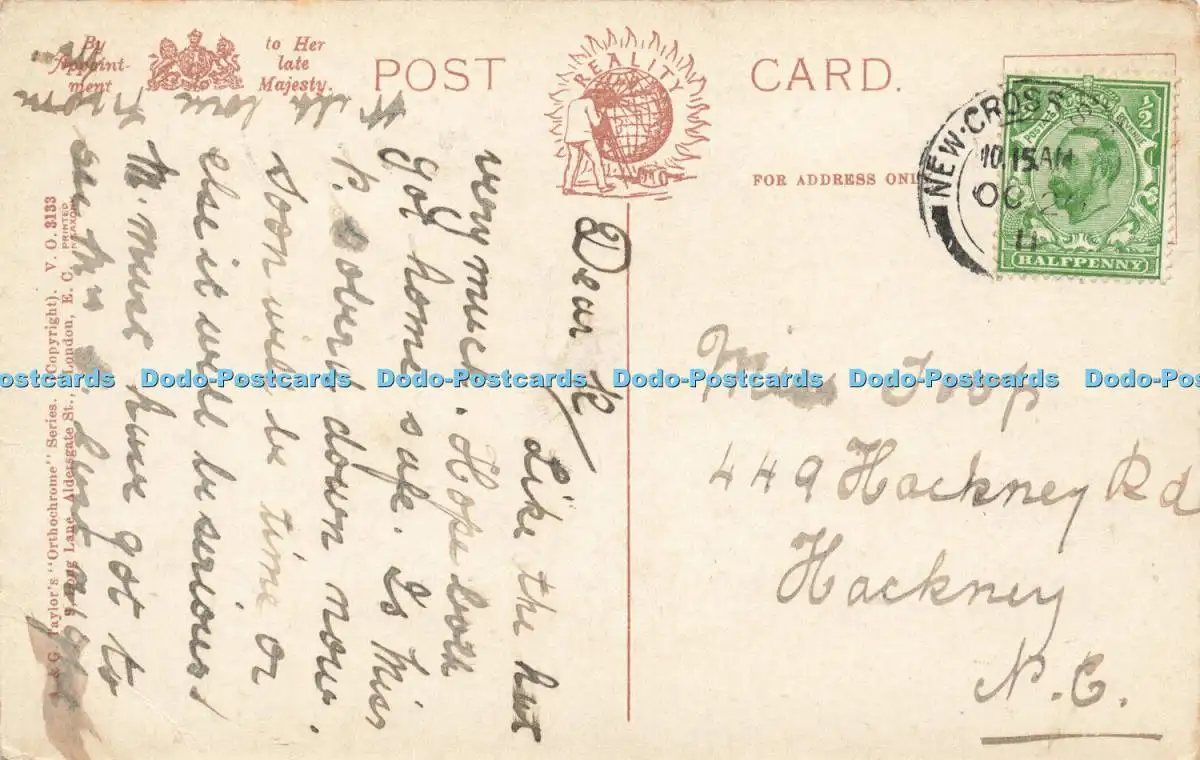 By Appoint-ment
to Her late Majesty.
POST CARD.
REALITY
FOR ADDRESS ONLY
NEW·CROSS
10.15AM
OC 2
11
POSTAGE REVENUE
½
HALFPENNY
Dear K/ Like the hut
very much. Hope both
got home safe. Is Miss
P. sobered down now.
Soon will be time or
else it will be serious!
M. must have got to
see this last night
Miss Toop
449 Hackney Rd
Hackney
N.E.
& G. Taylor's "Orthochrome" Series. (Copyright). V. O. 3133
Long Lane, Aldersgate St., London, E. C.
PRINTED
IN SAXONY
Dodo-Postcards Dodo-Postcards Dodo-Postcards Dodo-Postcards Dodo-Postcards Dodo-Postcards